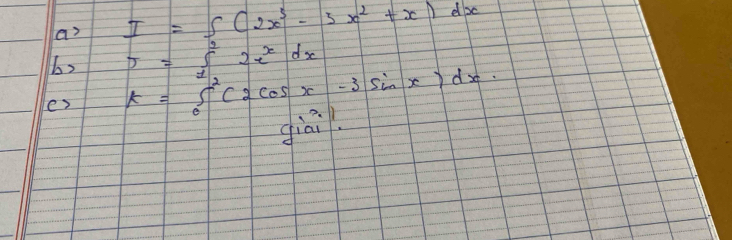 a) I = ∫ (2x³ - 3x² + x) dx
b) J = ∫₁² 2ˣ dx
c) K = ∫₀² (2 cos x - 3 sin x) dx.
giải.